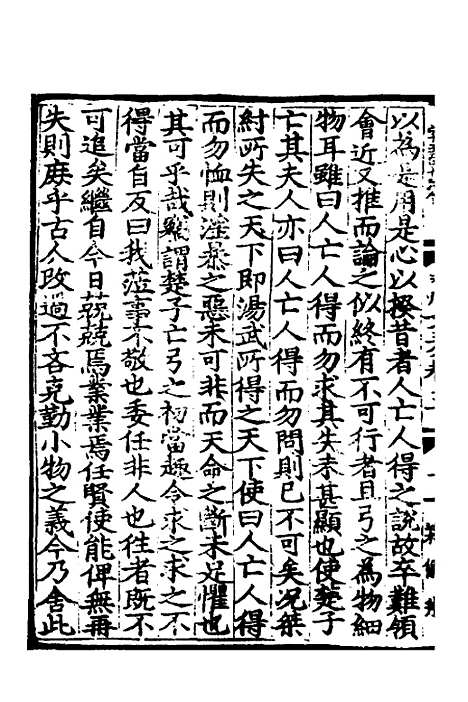 以為是用是心以揆昔者人亡人得之說故卒難領
會近又推而論之似終有不可行者且弓之為物細
物耳雖曰人亡人得而勿求其失未甚顯也使楚子
亡其夫人亦曰人亡人得而勿問則已不可矣况桀
紂所失之天下即湯武所得之天下使曰人亡人得
而勿恤則滛暴之惡未可非而天命之斷未足懼也
其可乎哉鄙謂楚子亡弓之初當趣令求之求之不
得當自反曰我蒞事不敬也委任非人也往者既不
可追矣繼自今日兢兢焉業業焉任賢使能俾無再
失則庶乎古人改過不吝克勤小物之義今乃舍此